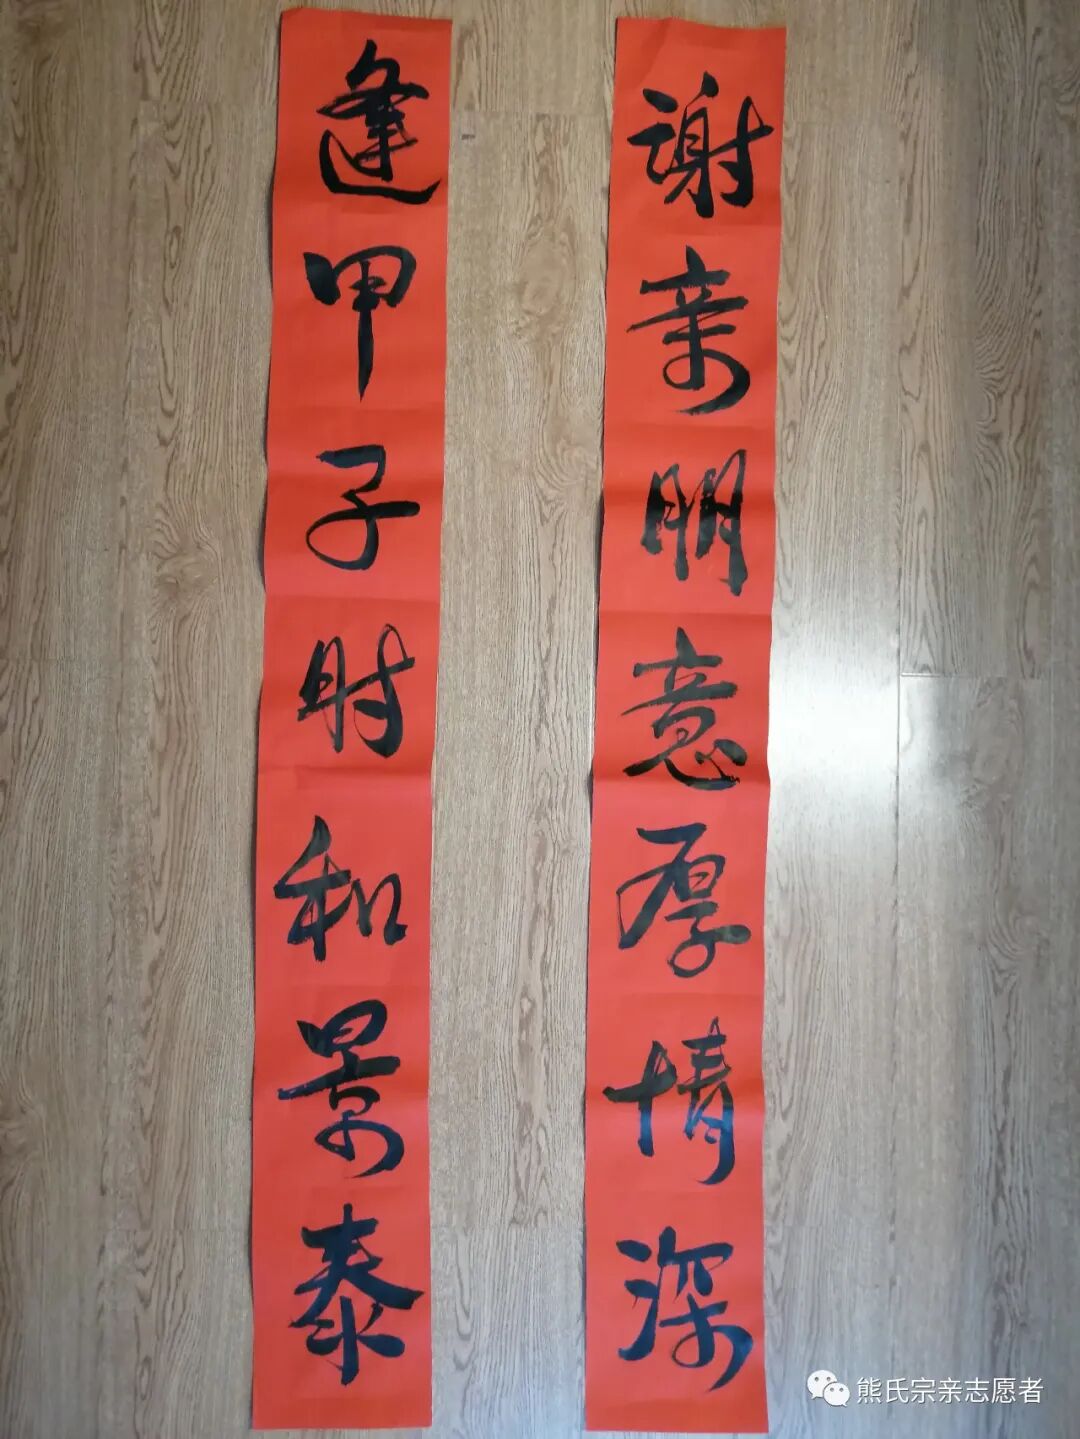 谢亲朋意厚情深
逢甲子时和景泰
熊氏宗亲志愿者